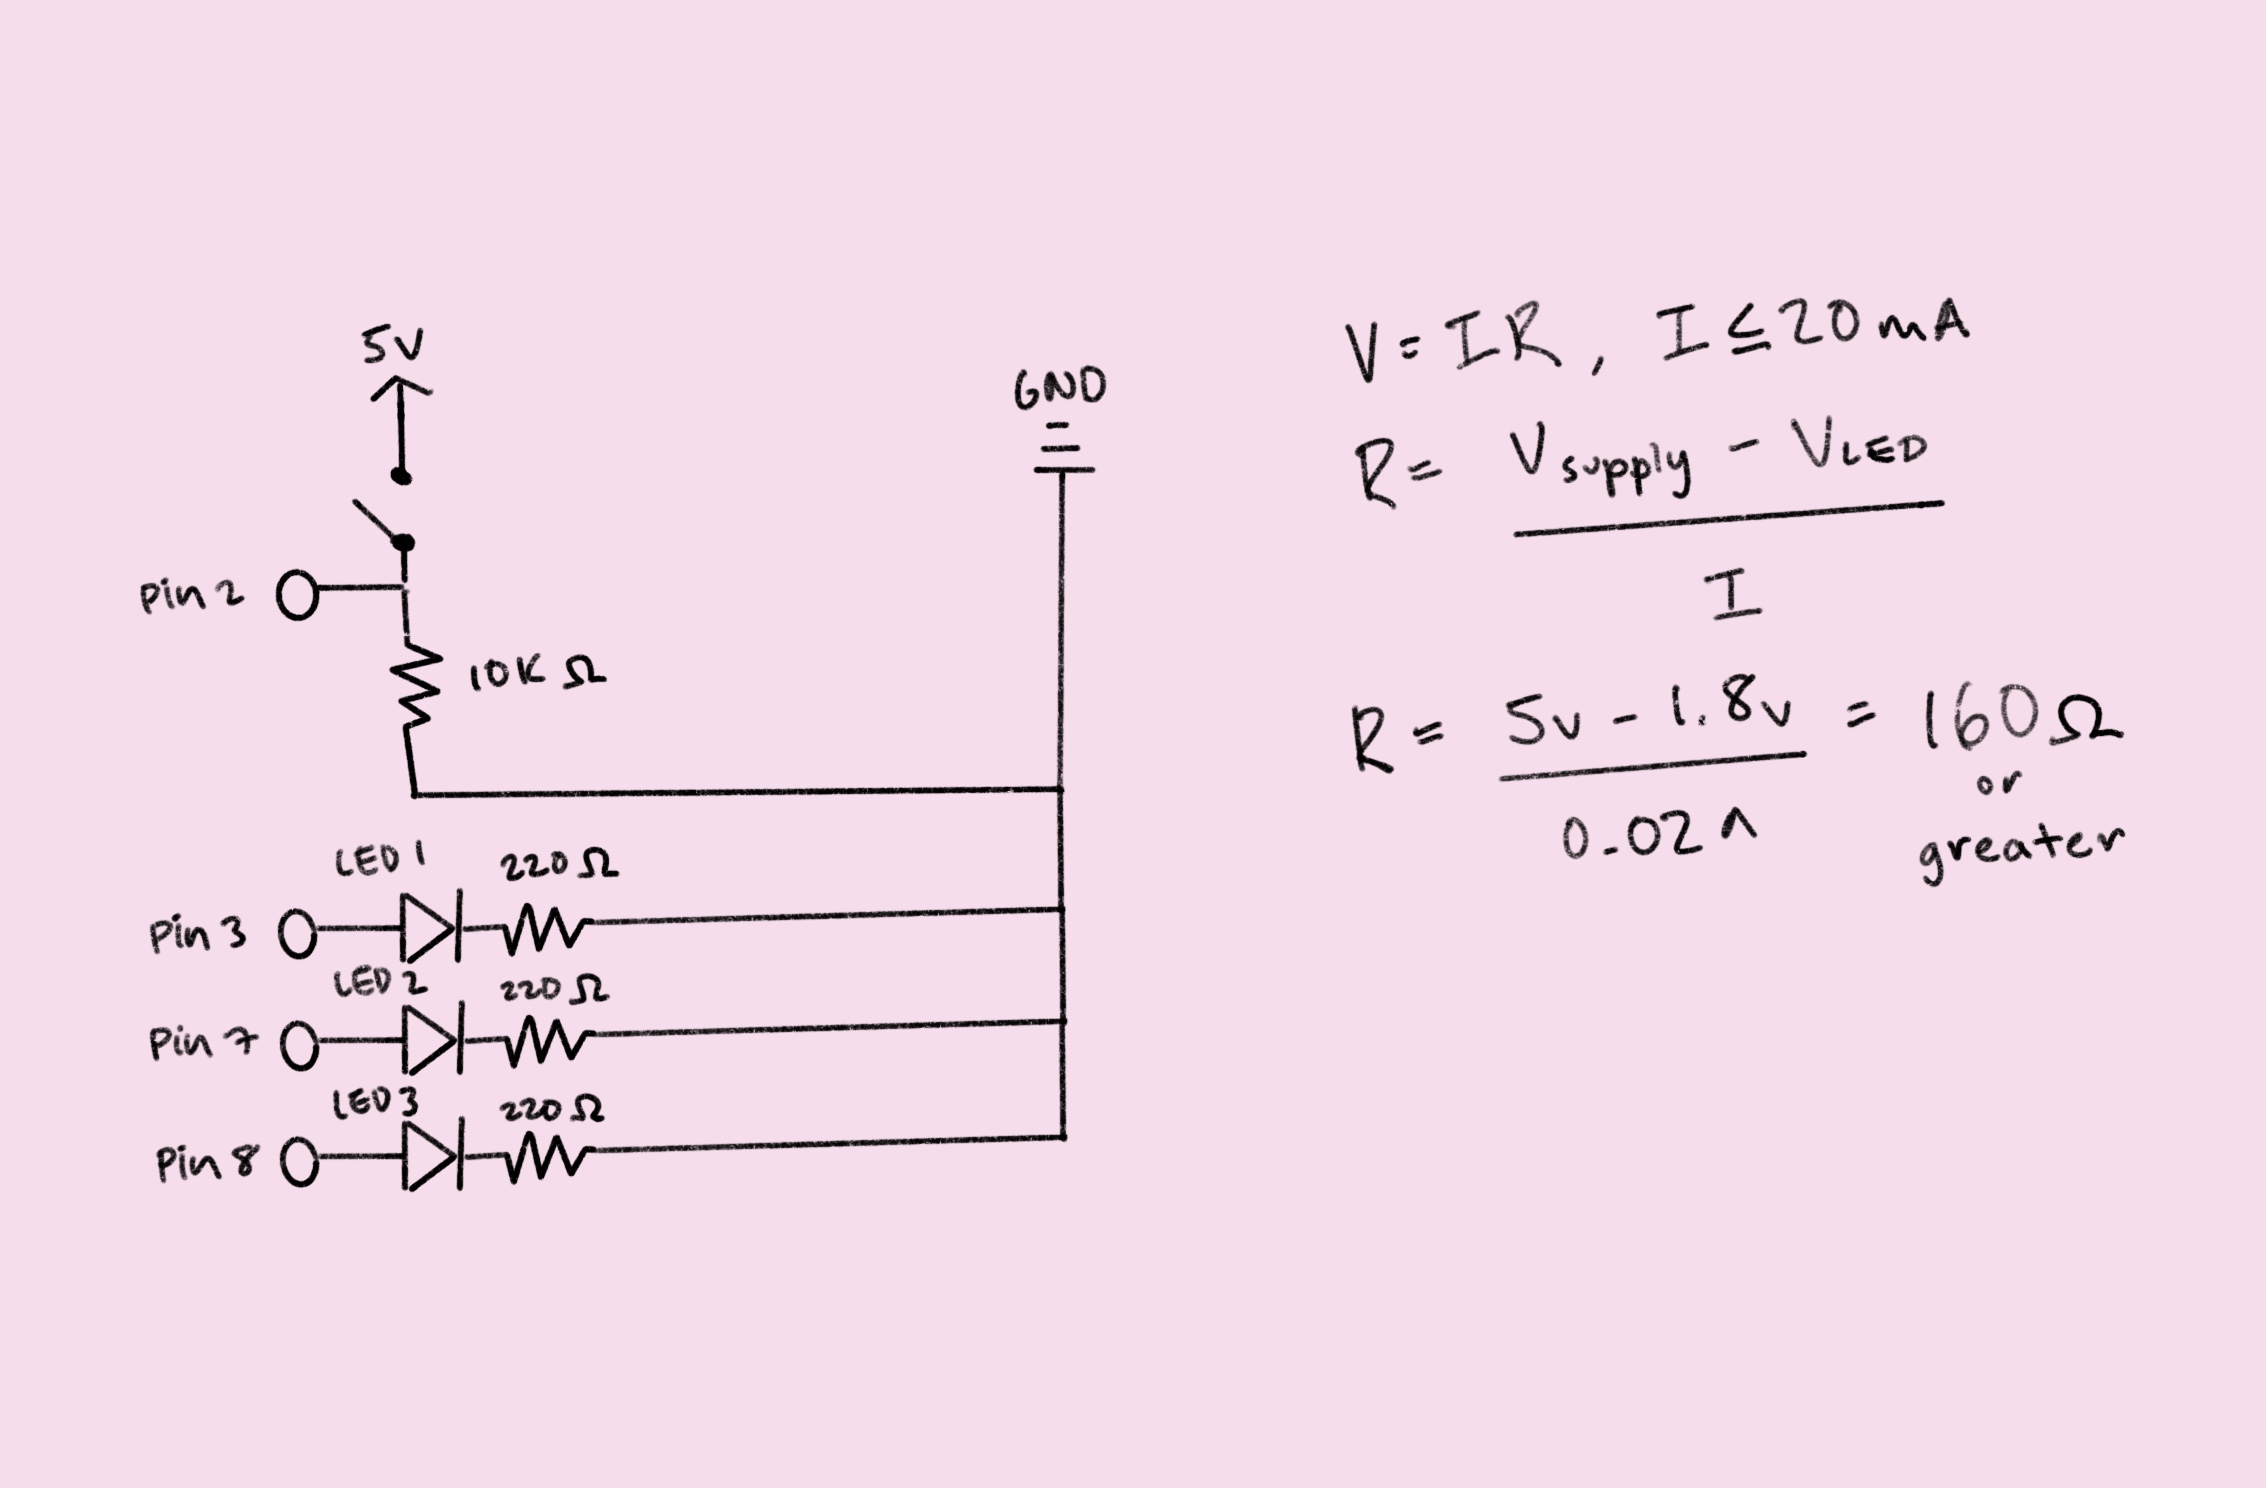 5V
GND
Pin 2
10K Ω
LED 1
220 Ω
Pin 3
LED 2
220 Ω
Pin 7
LED 3
220 Ω
Pin 8
V = IR, I ≤ 20 mA
R = V supply - V LED
I
R = 5v - 1.8v = 160 Ω
0.02 A
or
greater